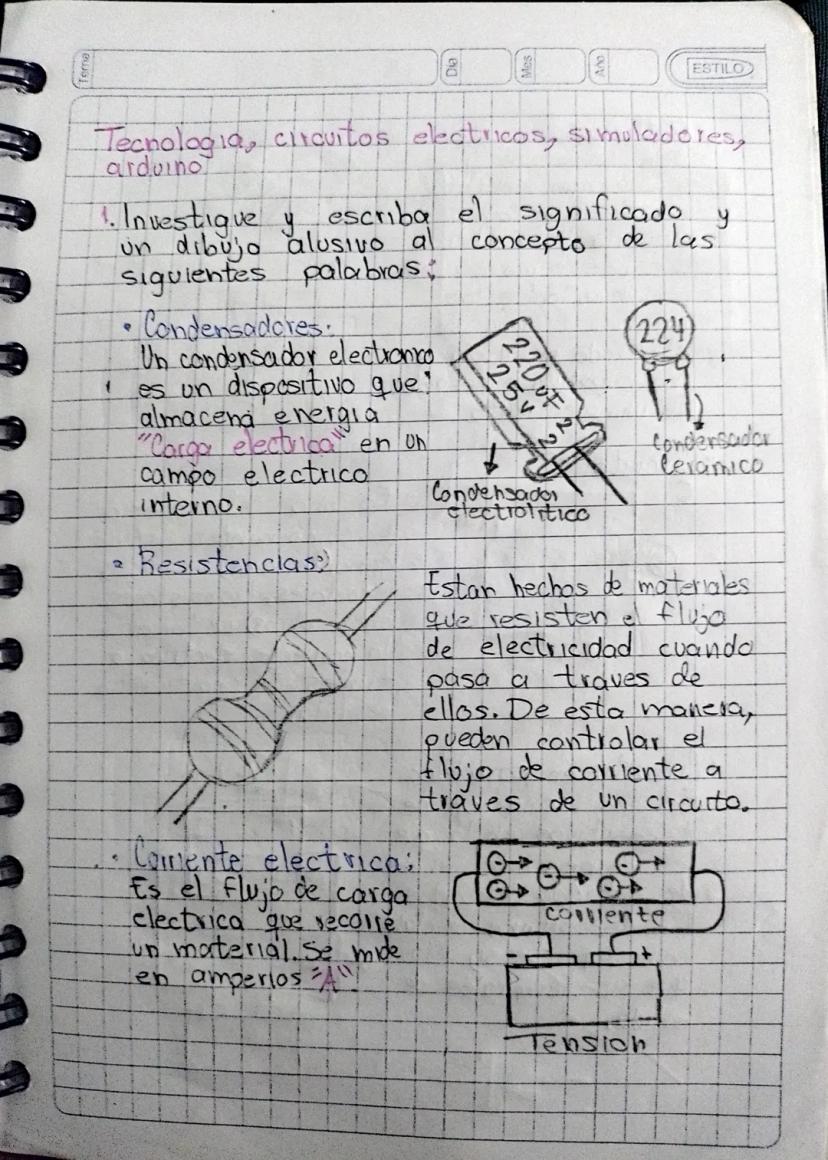 Tema
Día
Mes
Año
ESTILO
Tecnologia, circuitos electricos, simuladores,
arduino
1. Investigue y escriba el significado y
un dibujo alusivo al concepto de las
siguientes palabras:
• Condensadores:
Un condensador electronico
es un dispositivo que
almacena energia
"Carga electrica" en un
campo electrico
interno.
220uF
25v
22
Condensador
electrolitico
224
Condensador
Ceramico
• Resistencias:
Estan hechos de materiales
que resisten el flujo
de electricidad cuando
pasa a traves de
ellos. De esta manera,
pueden controlar el
flujo de corriente a
traves de un circuito.
• Corriente electrica:
Es el flujo de carga
electrica que recorre
un material. Se mide
en amperios "A"
corriente
- +
Tension